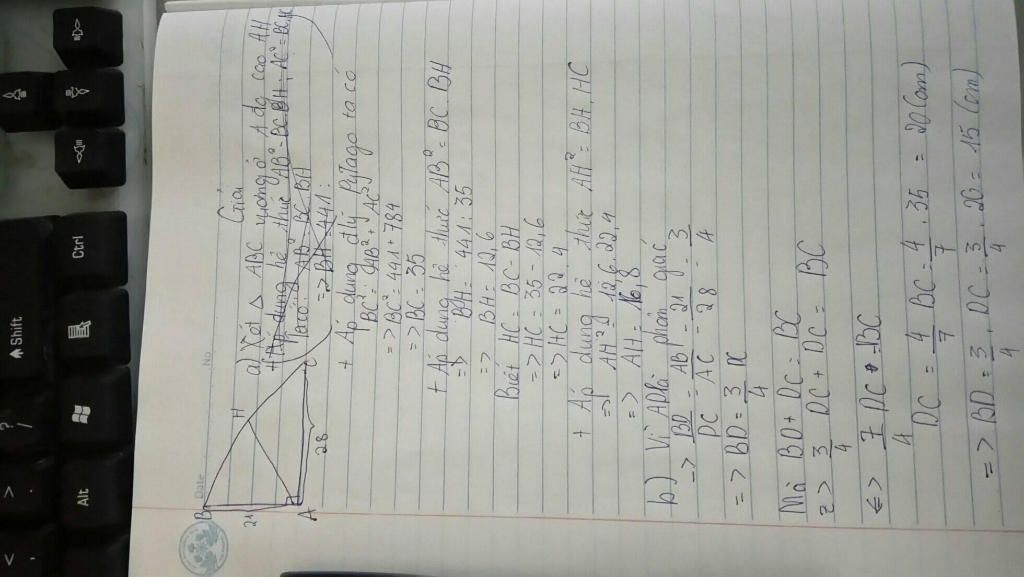 Date
No.
Giải
B
H
C
A
21
28
a) Xét △ ABC vuông ở A đg cao AH
+ Áp dụng hệ thức AB² = BC.BH, AC² = BC.HC
AB BC BH
=> BH 441:
+ Áp dụng đlý Pytago ta có
BC² = AB² + AC²
=> BC² = 441 + 784
=> BC = 35
+ Áp dụng hệ thức AB² = BC BH
=> BH = 441 : 35
=> BH = 12,6
Biết HC = BC - BH
=> HC = 35 - 12,6
=> HC = 22,4
+ Áp dụng hệ thức AH² = BH.HC
=> AH² = 12,6.22,4
=> AH = 16,8
b) Vì AD là phân giác
=> BD/DC = AB/AC = 21/28 = 3/4
=> BD = 3/4 DC
Mà BD + DC = BC
=> 3/4 DC + DC = BC
<=> 7/4 DC = BC
DC = 4/7 BC = 4/7 . 35 = 20 (cm)
=> BD = 3/4 . DC = 3/4 . 20 = 15 (cm)
Shift
Ctrl
Alt
?
/
>
.
<
,